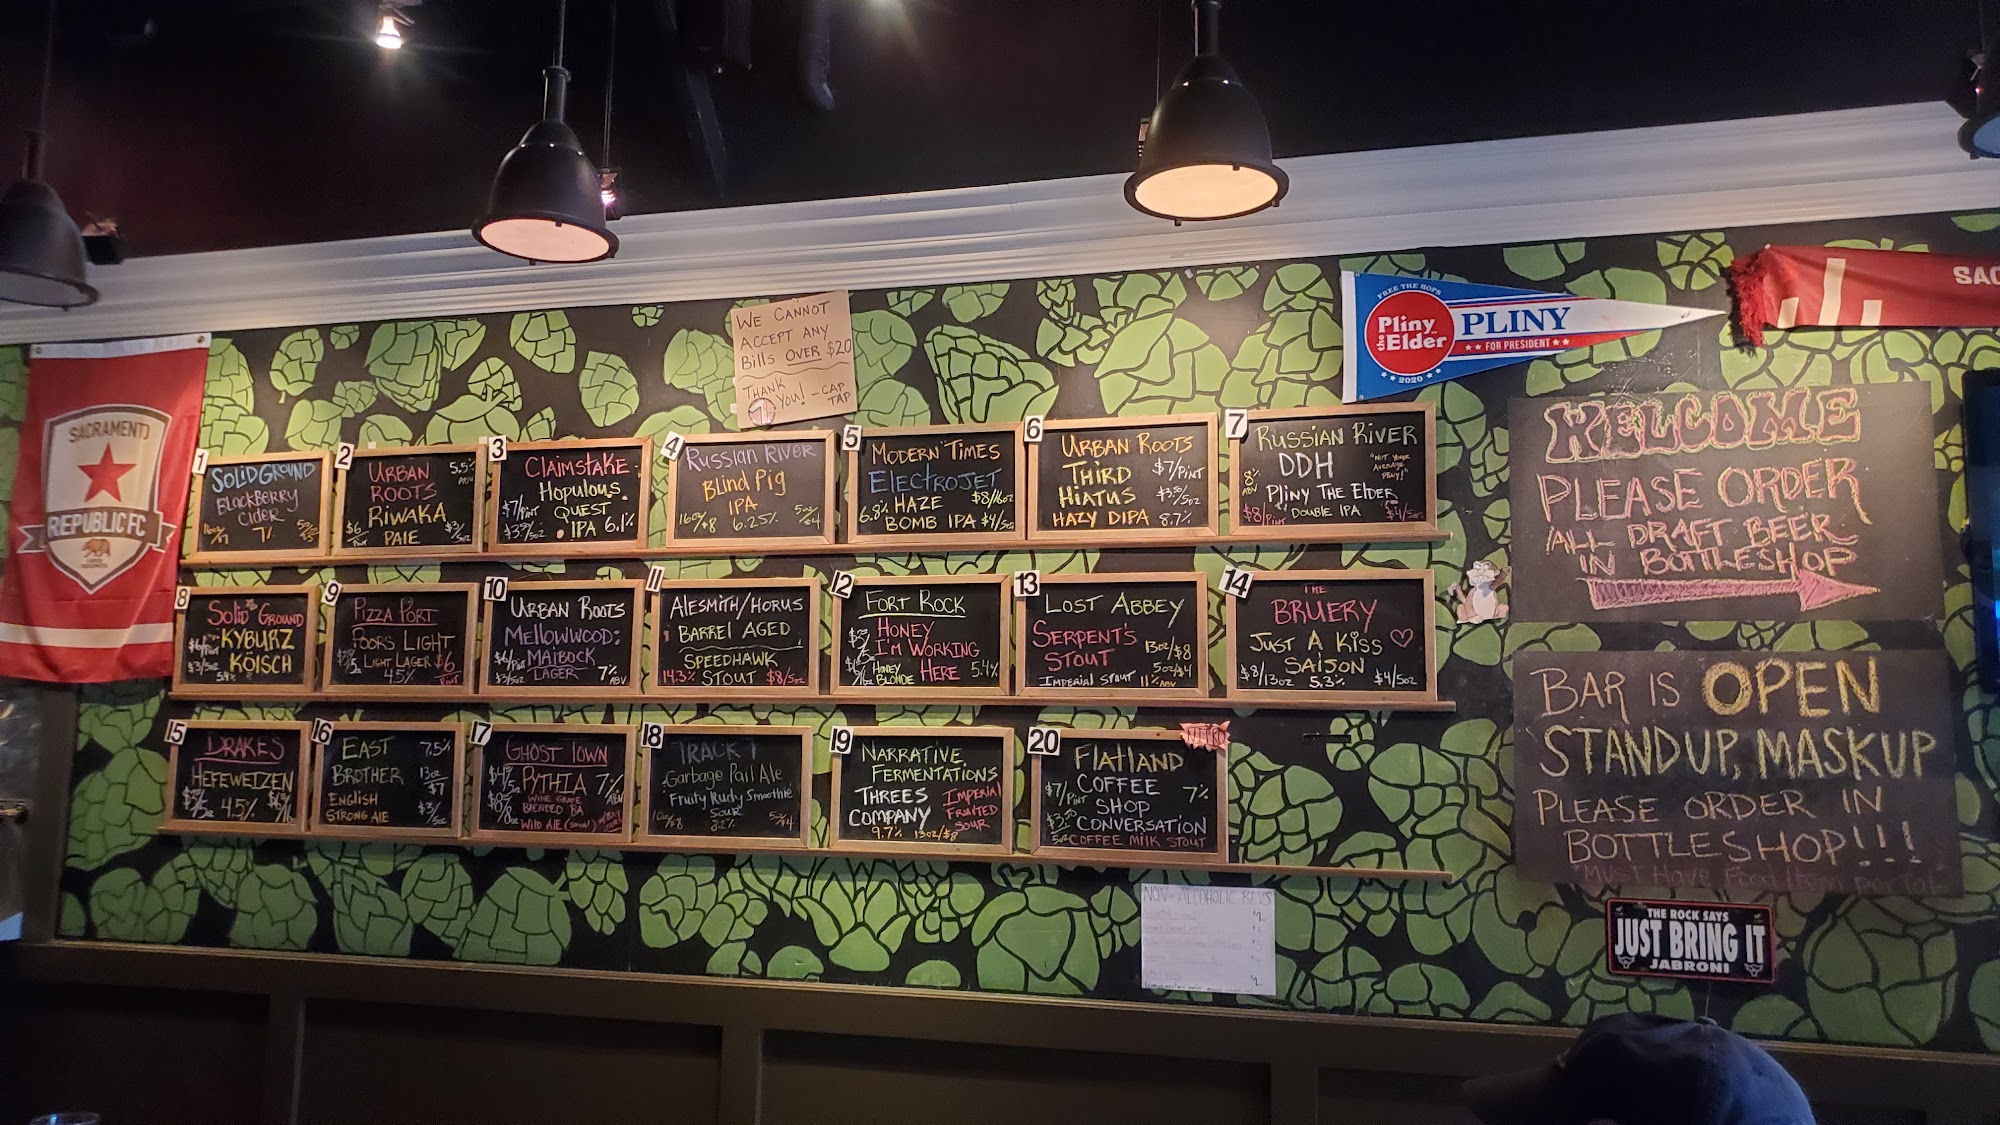 WE CANNOT
ACCEPT ANY
BILLS OVER $20
THANK
YOU! - CAP
TAP
FREE THE HOPS
Pliny
the Elder
2020
PLINY
FOR PRESIDENT
SAC
SACRAMENTO
REPUBLIC FC
1
SOLID GROUND
BLACKBERRY
CIDER
7%
2
URBAN 5.5%
ROOTS
RIWAKA
PALE
$6/PINT $3/5oz
3
CLAIMSTAKE
HOPULOUS
QUEST
IPA 6.1%
$7/PINT
$3.50/5oz
4
RUSSIAN RIVER
BLIND PIG
IPA
16oz/$8 6.25% 5oz/$4
5
MODERN TIMES
ELECTROJET
6.8% HAZE $8/16oz
BOMB IPA $4/5oz
6
URBAN ROOTS
THIRD $7/PINT
HIATUS $3.50/5oz
HAZY DIPA 8.7%
7
RUSSIAN RIVER
DDH "NOT YOUR AVERAGE PLINY!"
8% ABV PLINY THE ELDER
$8/PINT DOUBLE IPA $4/5oz
8
SOLID GROUND
$6/PINT KYBURZ
$3/5oz KÖISCH
5.4%
9
PIZZA PORT
POORS LIGHT
LIGHT LAGER $6/PINT
4.5%
10
URBAN ROOTS
MELLOWWOOD:
$6/PINT MAIBOCK
$3/5oz LAGER 7% ABV
11
ALESMITH/HORUS
BARREL AGED
SPEEDHAWK
14.3% STOUT $8/5oz
12
FORT ROCK
HONEY
I'M WORKING
HERE 5.4%
HONEY
BLONDE
13
LOST ABBEY
SERPENT'S 13oz/$8
STOUT 5oz/$4
IMPERIAL STOUT 11% ABV
14
THE
BRUERY
JUST A KISS
SAISON
$8/13oz 5.3% $4/5oz
15
DRAKES
HEFEWEIZEN
4.5%
16
EAST 7.5%
BROTHER 13oz $7
ENGLISH
STRONG ALE $3/5oz
17
GHOST TOWN
PYTHIA 7% ABV
WINE GRAPE
BLENDED BA
WILD ALE
18
TRACK 7
Garbage Pail Ale
Fruity Rudy Smoothie
SOUR
8.2%
19
NARRATIVE
FERMENTATIONS
THREES IMPERIAL
COMPANY FRUITED
SOUR
9.7% 13oz/$8
20
FLATLAND
COFFEE
$7/PINT SHOP 7%
$3.50/5oz CONVERSATION
COFFEE MILK STOUT
WELCOME
PLEASE ORDER
ALL DRAFT BEER
IN BOTTLESHOP
BAR IS OPEN
STANDUP, MASKUP
PLEASE ORDER IN
BOTTLESHOP!!!
*MUST HAVE FOOD ITEM PER TAB
NON-ALCOHOLIC BEVS
THE ROCK SAYS
JUST BRING IT
JABRONI